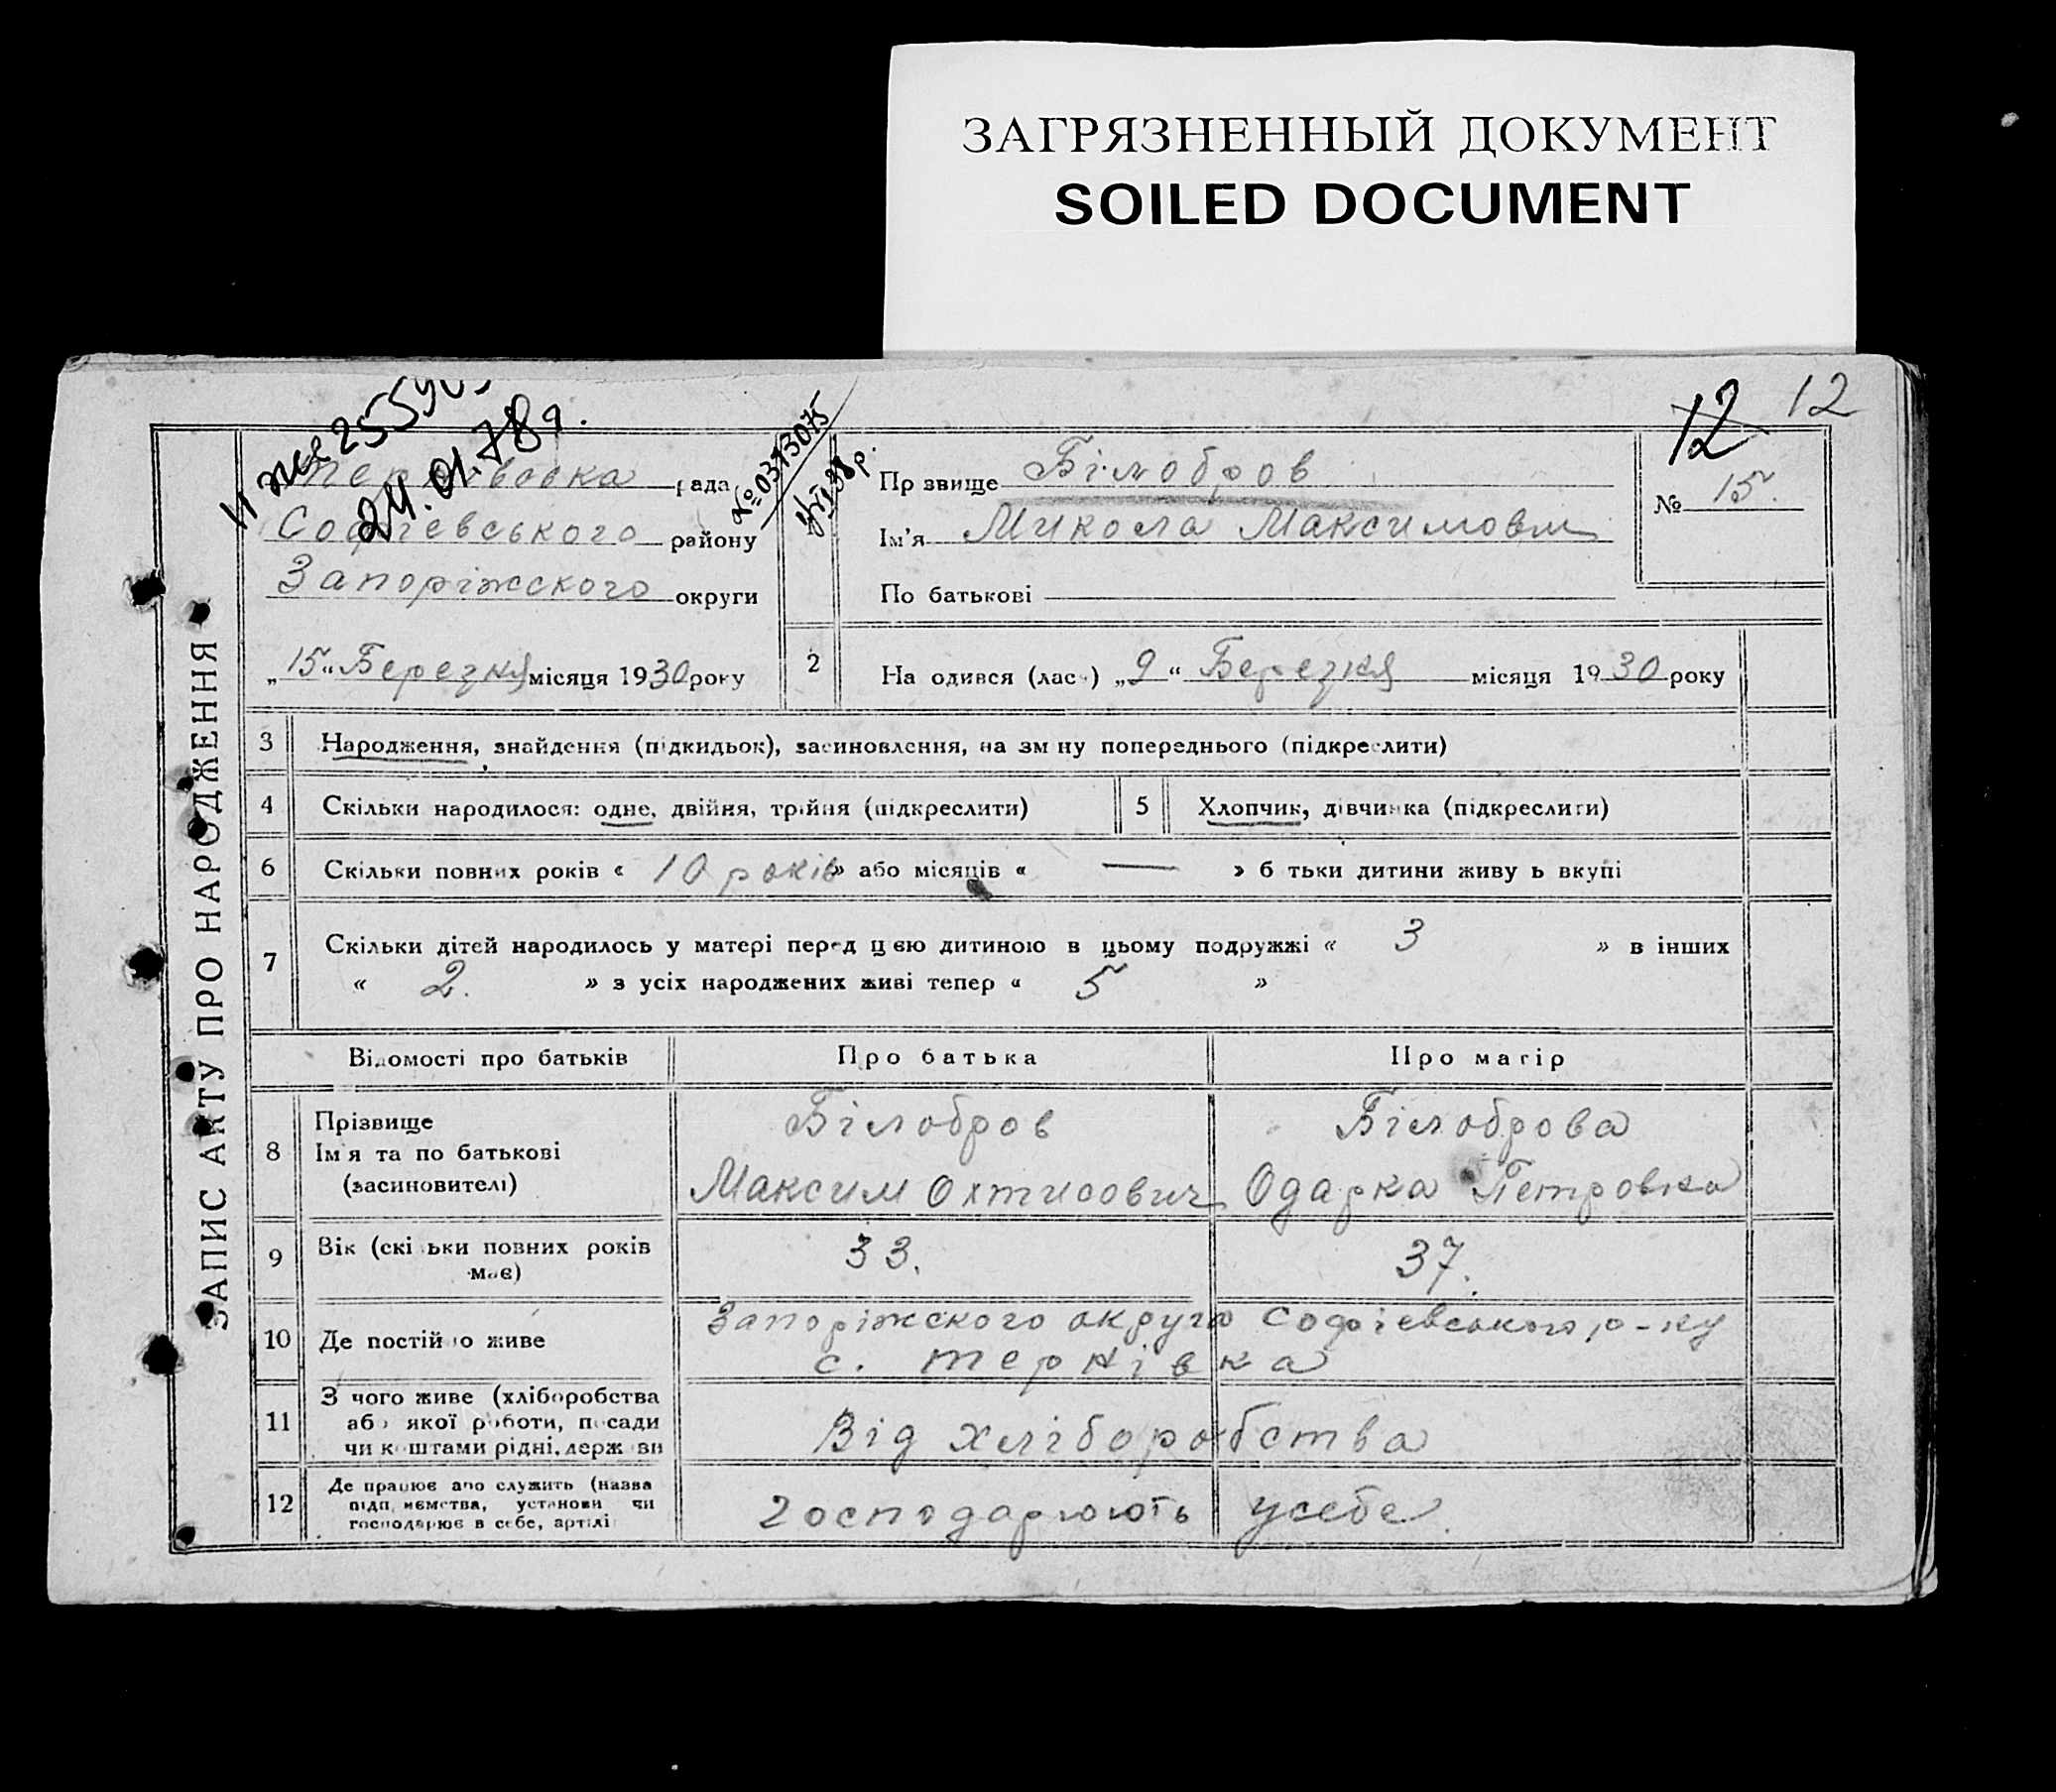 ЗАГРЯЗНЕННЫЙ ДОКУМЕНТ
SOILED DOCUMENT
12 12
24.01.78
№0373075
ЗАПИС АКТУ ПРО НАРОДЖЕННЯ
рада
Софієвського району
Запоріжского округи
„15“ Березня місяця 1930 року
Прізвище Білобров
Ім'я Микола Максимови
По батькові
№ 15.
2 Народився (лась) „9“ Березня місяця 1930 року
3 Народження, знайдення (підкидьок), засиновлення, на зміну попереднього (підкреслити)
4 Скільки народилося: одне, двійня, трійня (підкреслити)
5 Хлопчик, дівчинка (підкреслити)
6 Скільки повних років « 10 років » або місяців « — » батьки дитини живуть вкупі
7 Скільки дітей народилось у матері перед цією дитиною в цьому подружжі « 3 » в інших
« 2. » з усіх народжених живі тепер « 5 »
Відомості про батьків Про батька Про матір
8 Прізвище
Ім'я та по батькові
(засиновителі)
Білобров
Максим Охтисович
Білоброва
Одарка Петровна
9 Вік (скільки повних років
має)
33. 37.
10 Де постійно живе
Запоріжского округи Софієвського р-ну
с. Тернівка
11 З чого живе (хліборобства
або якої роботи, посади
чи коштами рідні, держави
Від хліборобства
12 Де працює або служить (назва
підприємства, установи чи
господарює в себе, артілі
Господарюють усебе.